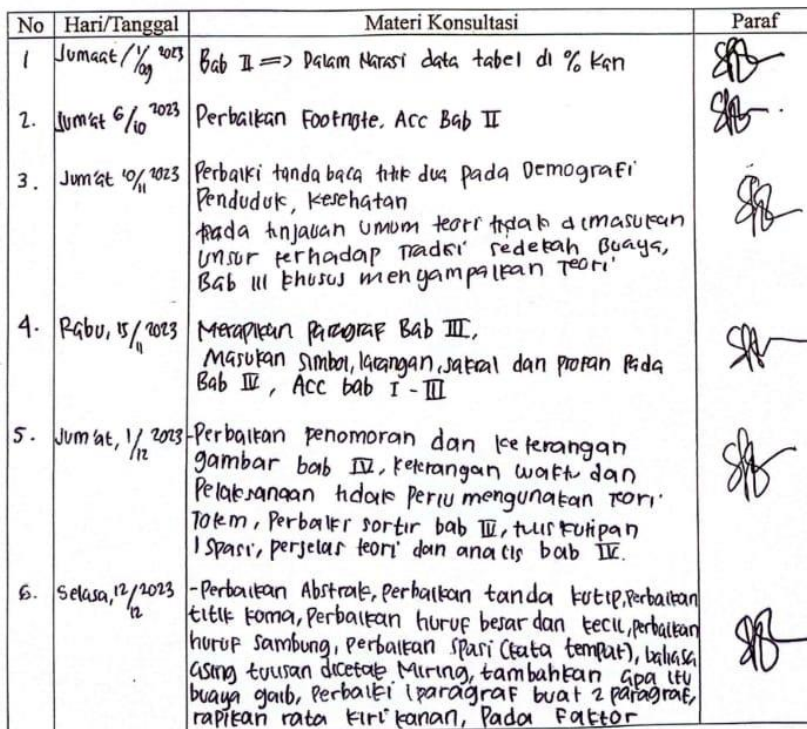 No Hari/Tanggal Materi Konsultasi Paraf
1 Jumaat / 1/09 2023 Bab II => Dalam Narasi data tabel di % kan
2. Jum'at 6/10 2023 Perbaikan Footnote. Acc Bab II
3. Jum'at 10/11 2023 Perbaiki tanda baca titik dua pada Demografi
Penduduk, Kesehatan
pada tinjauan umum teori tidak dimasukan
unsur terhadap Tradisi sedekah Buaya,
Bab III khusus menyampaikan Teori
4. Rabu, 15/11 2023 Merapikan Paragraf Bab III,
Masukan simbol, larangan, sakral dan propan Pada
Bab IV, Acc bab I - III
5. Jum'at, 1/12 2023 -Perbaikan penomoran dan keterangan
gambar bab IV, keterangan waktu dan
Pelaksanaan tidak perlu mengunakan teori
Totem, Perbaiki sortir bab IV, tulis kutipan
1 spasi, perjelas teori dan analis bab IV.
6. Selasa, 12/12 2023 -Perbaikan Abstrak, Perbaikan tanda kutip, Perbaikan
titik koma, Perbaikan huruf besar dan kecil, perbaikan
huruf sambung, perbaikan spasi (kata tempat), bahasa
asing tulisan dicetak Miring, tambahkan apa itu
buaya gaib, Perbaiki 1 paragraf buat 2 paragraf,
rapikan rata kiri kanan, Pada Faktor